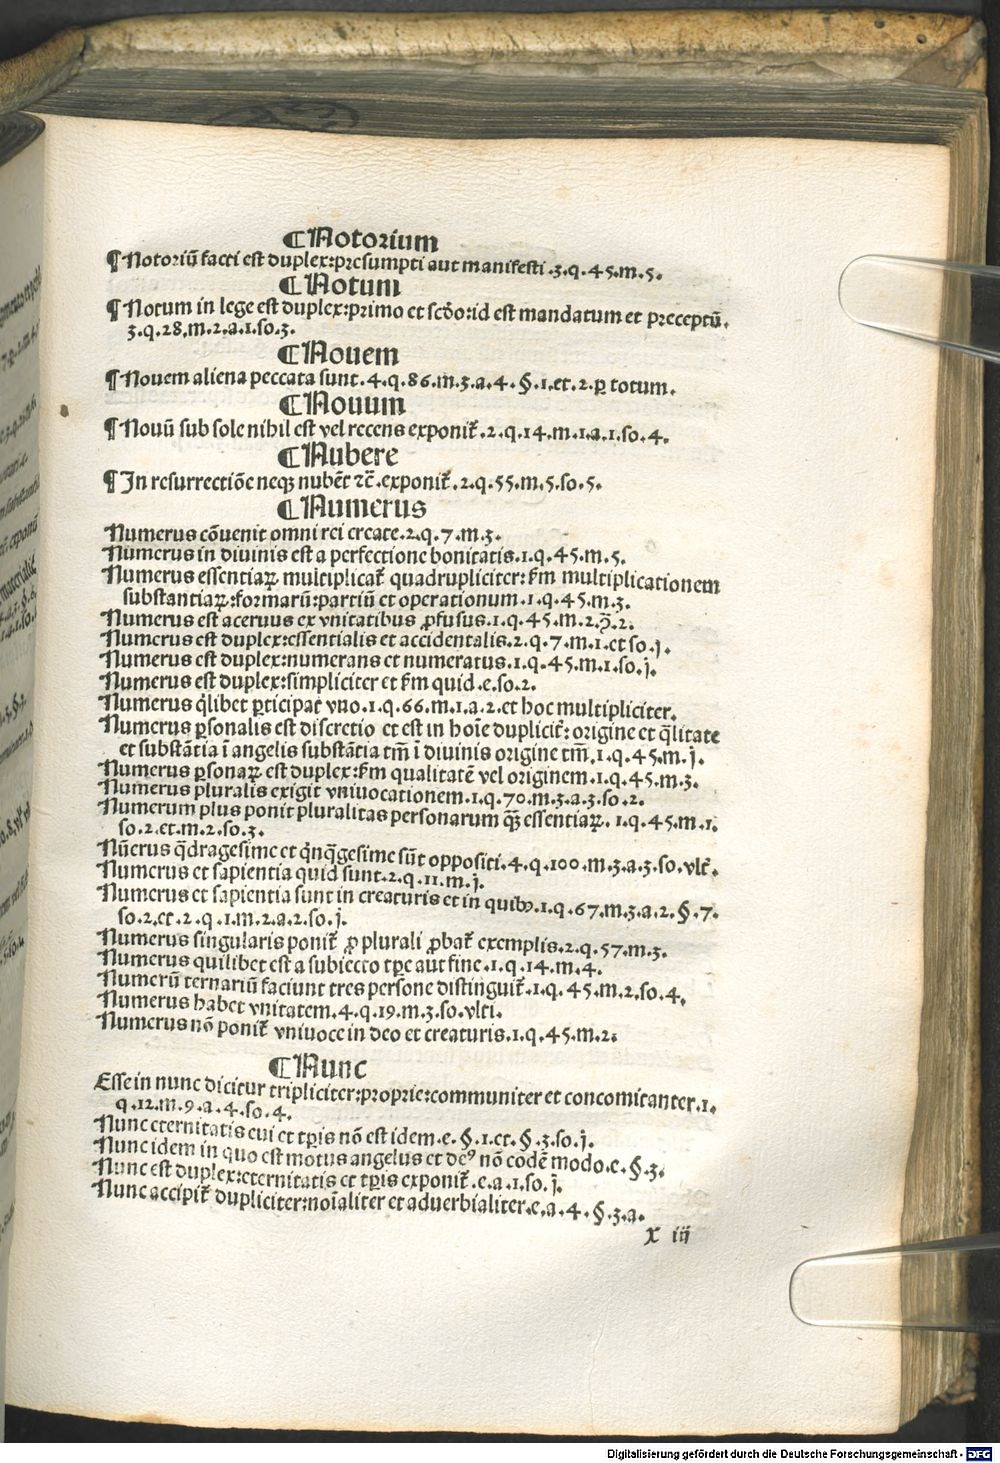 ¶Notorium
¶Notoriū facti est duplex:presumpti aut manifesti.3.q.45.m.5.
¶Notum
¶Notum in lege est duplex:primo et scđo:id est mandatum et preceptū.
3.q.28.m.2.a.1.so.3.
¶Nouem
¶Nouem aliena peccata sunt.4.q.86.m.3.a.4.§.1.et.2.ꝑ totum.
¶Nouum
¶Nouū sub sole nihil est vel recens exponit̄.2.q.14.m.1.a.1.so.4.
¶Nubere
¶In resurrectiōe neqꝫ nubēt ⁊c̄.exponit̄.2.q.55.m.5.so.5.
¶Numerus
Numerus cōuenit omni rei create.2.q.7.m.3.
Numerus in diuinis est a perfectione bonitatis.1.q.45.m.5.
Numerus essentiaꝝ multiplicat̄ quadrupliciter:ẜm multiplicationem
substantiaꝝ:formarū:partiū et operationum.1.q.45.m.3.
Numerus est aceruus ex vnitatibus ꝓfusus.1.q.45.m.2.ꝙ.2.
Numerus est duplex:essentialis et accidentalis.2.q.7.m.1.et so.j.
Numerus est duplex:numerans et numeratus.1.q.45.m.1.so.j.
Numerus est duplex:simpliciter et ẜm quid.e.so.2.
Numerus q̄libet ꝑticipat vno.1.q.66.m.1.a.2.et hoc multipliciter.
Numerus ꝑsonalis est discretio et est in hoīe duplicit̄:origine et q̄litate
et substātia ī angelis substātia tm̄ ī diuinis origine tm̄.1.q.45.m.j.
Numerus ꝑsonaꝝ est duplex:ẜm qualitatē vel originem.1.q.45.m.3.
Numerus pluralis exigit vniuocationem.1.q.70.m.3.a.3.so.2.
Numerum plus ponit pluralitas personarum q̄ꝫ essentiaꝝ. 1.q.45.m.1.
so.2.et.m.2.so.3.
Nūerus q̄dragesime et q̄nq̄gesime sūt oppositi.4.q.100.m.3.a.3.so.vlt̄.
Numerus et sapientia quid sunt.2.q.11.m.j.
Numerus et sapientia sunt in creaturis et in quibꝫ.1.q.67.m.3.a.2.§.7.
so.2.et.2.q.1.m.2.a.2.so.j.
Numerus singularis ponit̄ ꝓ plurali ꝓbat̄ exemplis.2.q.57.m.3.
Numerus quilibet est a subiecto tꝑe aut fine.1.q.14.m.4.
Numerū ternariū faciunt tres persone distinguit̄.1.q.45.m.2.so.4.
Numerus habet vnitatem.4.q.19.m.3.so.vlti.
Numerus nō ponit̄ vniuoce in deo et creaturis.1.q.45.m.2.
¶Nunc
Esse in nunc dicitur tripliciter:proprie:communiter et concomitanter.1.
q.12.m.9.a.4.so.4.
Nunc eternitatis eui et tꝑis nō est idem.e.§.1.et.§.3.so.j.
Nunc idem in quo est motus angelus et deꝰ nō eodē modo.e.§.3.
Nunc est duplex:eternitatis et tꝑis exponit̄.e.a.1.so.j.
Nunc accipit̄ dupliciter:noīaliter et aduerbialiter.e.a.4.§.3.a.
x iij
Digitalisierung gefördert durch die Deutsche Forschungsgemeinschaft - DFG